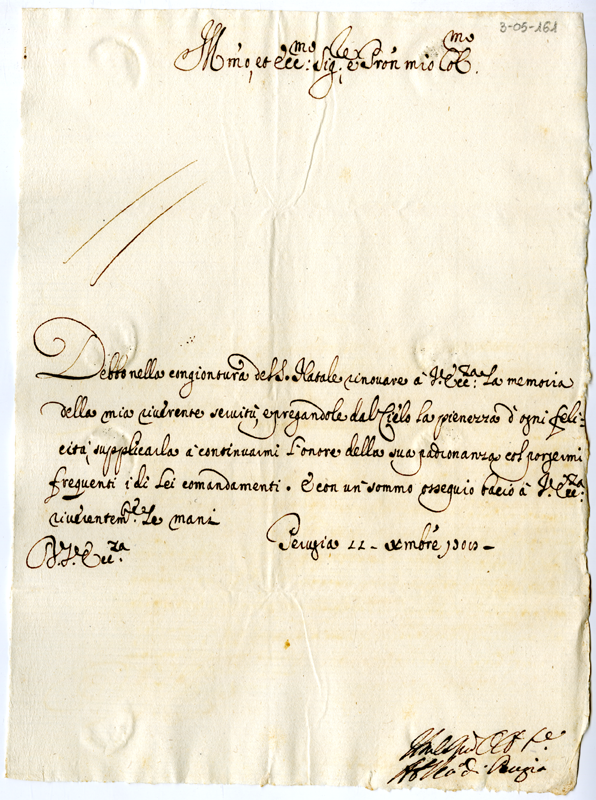 3-05-161
Ill.mo, et Ecc.mo Sig.re e Pron mio Col.mo
Debbo nella congiontura del S. Natale rinovare à V. Ecc.za la memoria
della mia riverente servitù, e pregandole dal Cielo la pienezza d'ogni feli-
cità, supplicarla à continuarmi l'onore della sua padronanza col porgermi
frequenti i di Lei comandamenti. E con un sommo ossequio bacio à V. Ecc.za
riverentem.te le mani
Perugia 22 Xmbre
D. V. Ecc.za
di Perugia